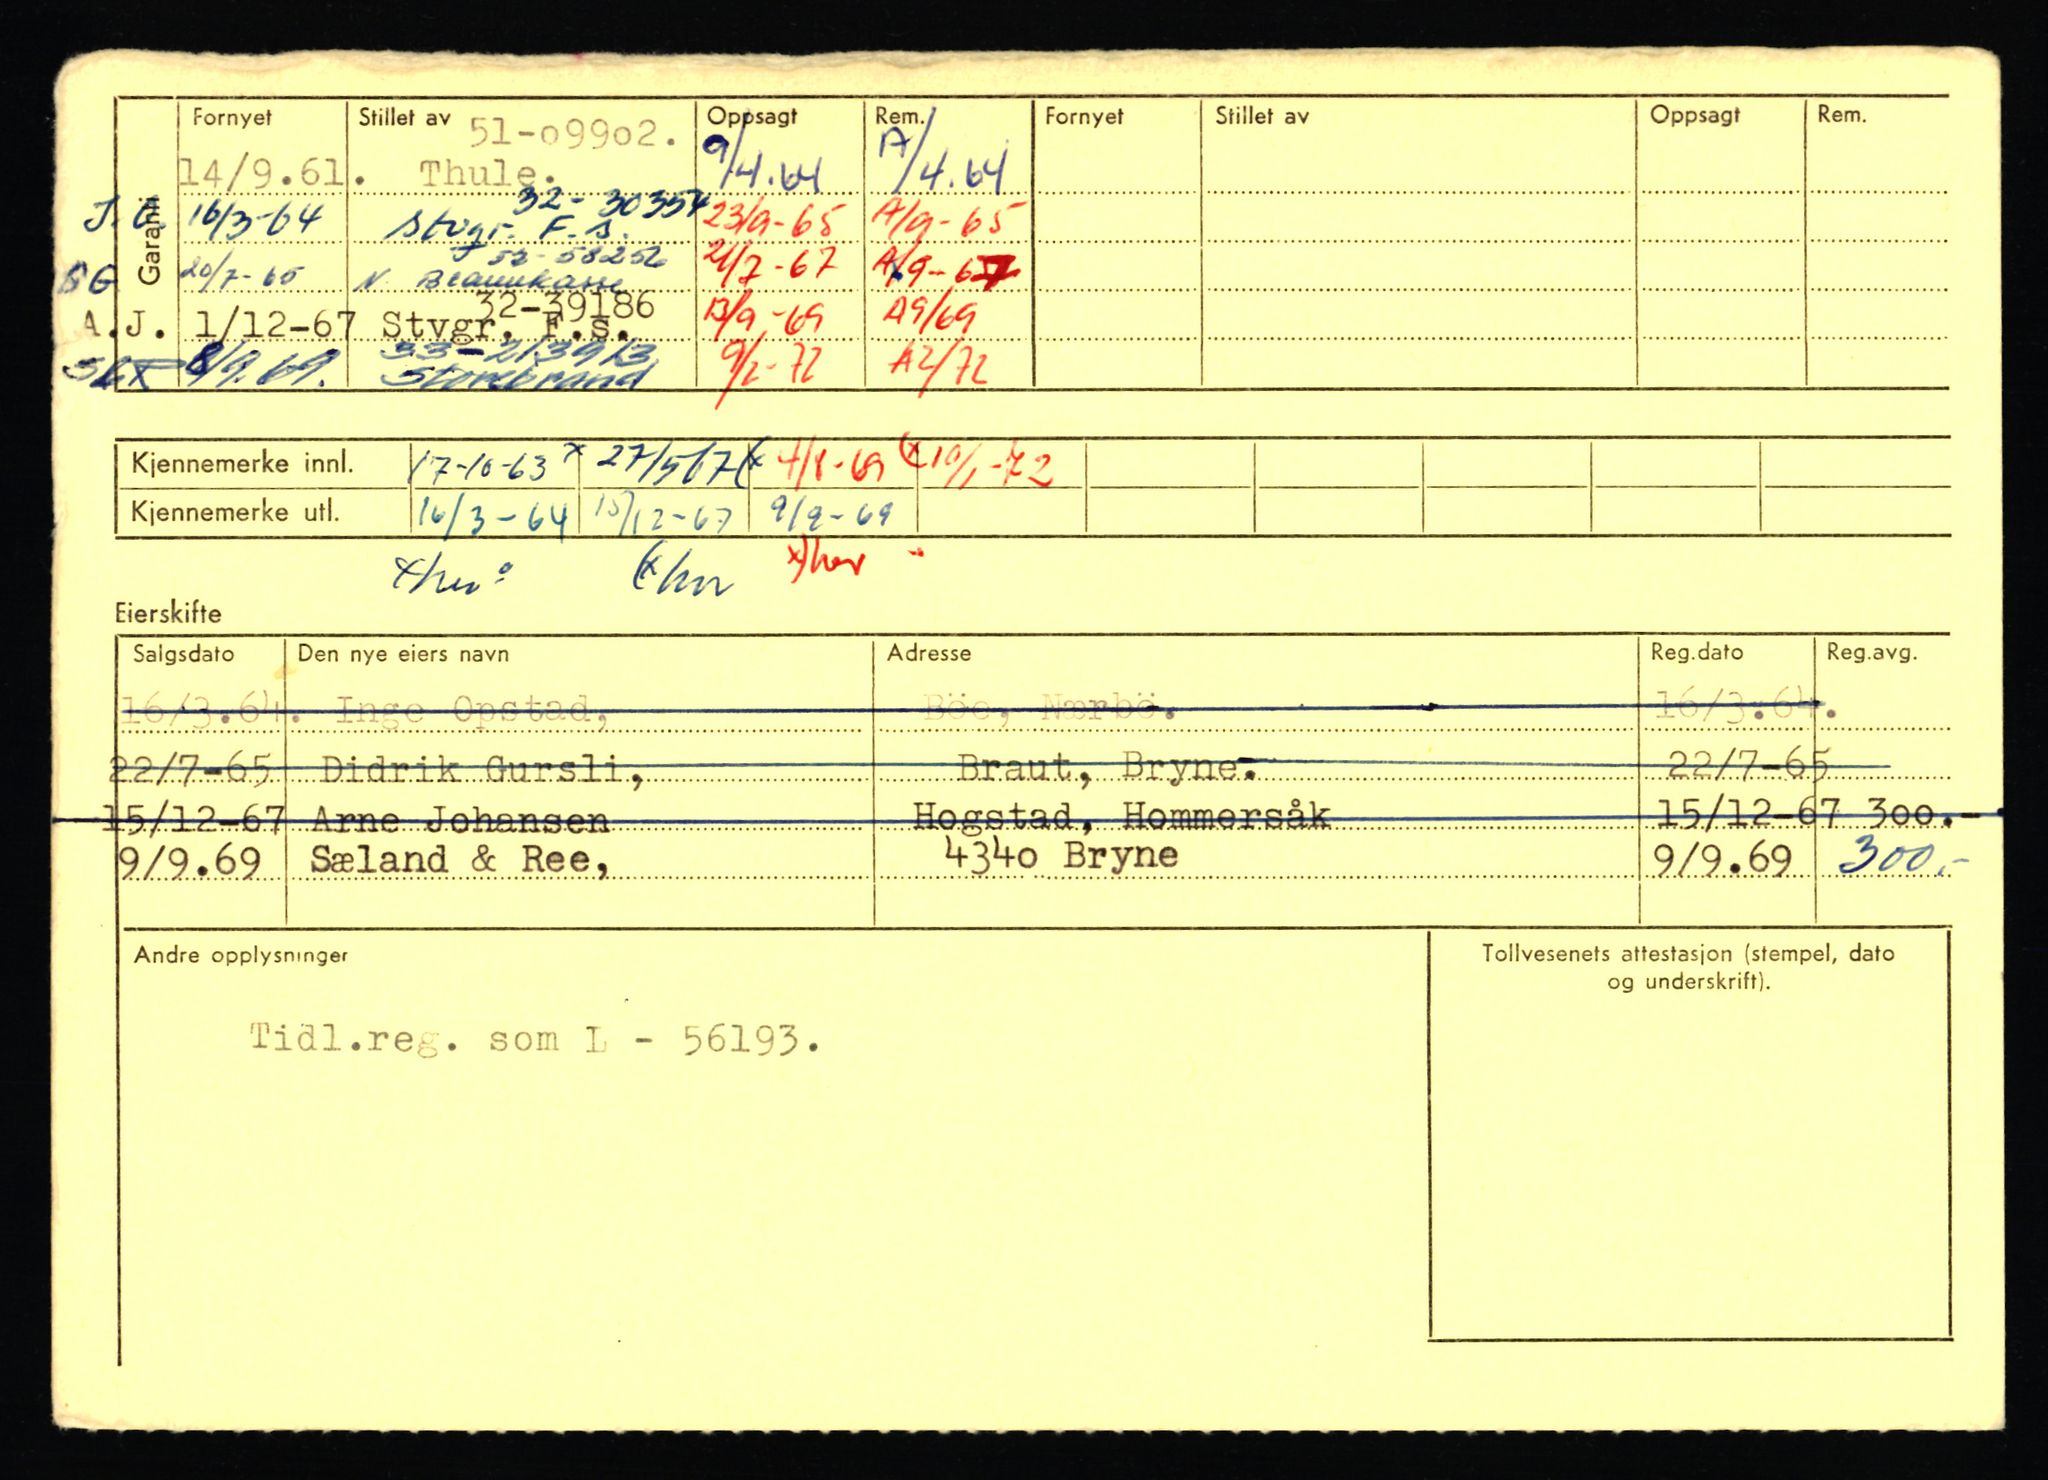 Garanti Fornyet Stillet av Oppsagt Rem. Fornyet Stillet av Oppsagt Rem.
51-o99o2.
14/9.61. Thule. 9/4.64 A/4.64
32-30354
16/3-64 Stvgr. F.s. 23/9-65 A/9-65
52-58256
SG 20/7-65 N. Beamukasse 21/7-67 A/9-67
32-39186
A.J. 1/12-67 Stvgr. F.s. 13/9-69 A9/69
33-213913
8/9.69. Storebrand 9/2-72 A2/72
Kjennemerke innl. 17-10-63 x 27/5 67 (x 4/8-69 (x 10/1-72
Kjennemerke utl. 16/3-64 15/12-67 9/9-69
x/her (x/her x)her
Eierskifte
Salgsdato Den nye eiers navn Adresse Reg.dato Reg.avg.
16/3.64. Inge Opstad, Böe, Nærbö. 16/3.64.
22/7-65 Didrik Gursli, Braut, Bryne. 22/7-65
15/12-67 Arne Johansen Hogstad, Hommersåk 15/12-67 3oo.-
9/9.69 Sæland & Ree, 434o Bryne 9/9.69 300,-
Andre opplysninger Tollvesenets attestasjon (stempel, dato
og underskrift).
Tidl.reg. som L - 56193.